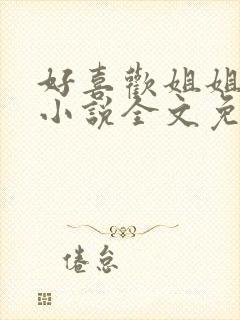 好喜歡姐姐
小說全文免
倦怠